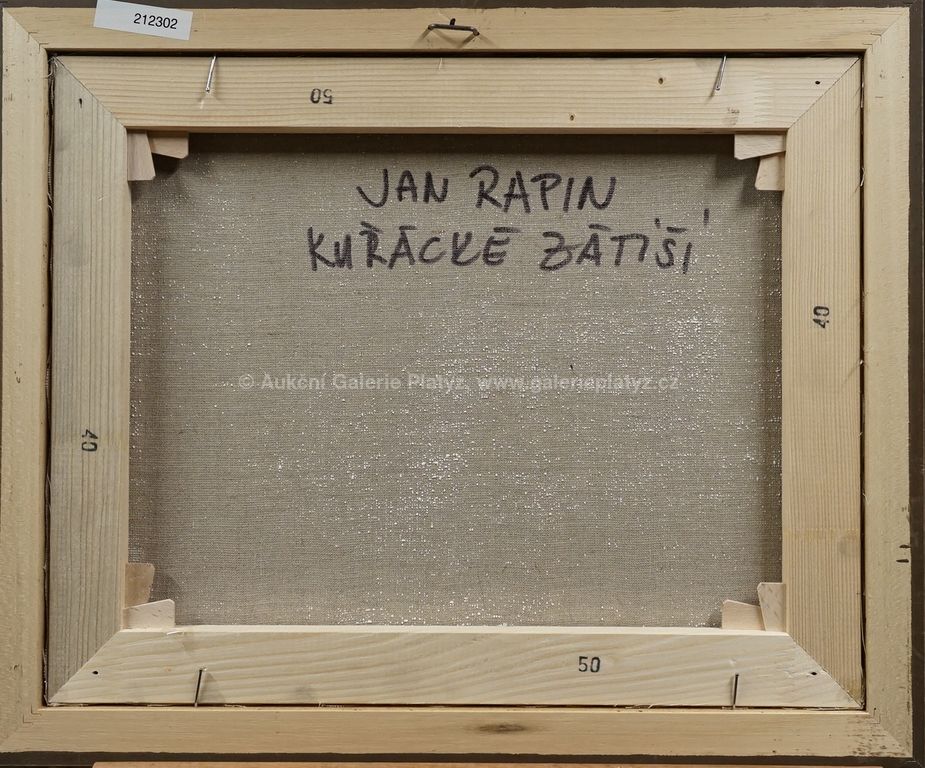 212302
50
JAN RAPIN
KUŘÁCKÉ ZÁTIŠÍ
40
© Aukční Galerie Platýz, www.galerieplatyz.cz
40
50